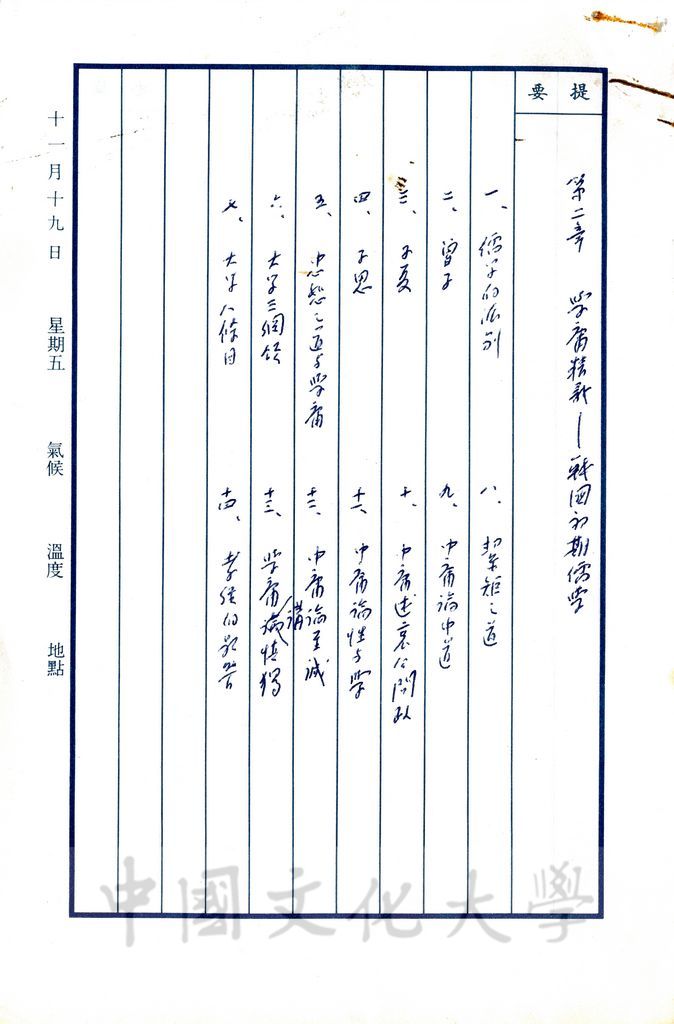 提要
第二章 學庸精義—戰國初期儒學
一、儒學的派別
八、絜矩之道
二、曾子
九、中庸論中道
三、子夏
十、中庸述哀公問政
四、子思
十一、中庸論性與學
五、忠恕之道與學庸
十二、中庸論至誠
六、大學三綱領
十三、學庸講慎獨
七、大學八條目
十四、孝經的影響
十一月十九日 星期五 氣候 溫度 地點
中國文化大學